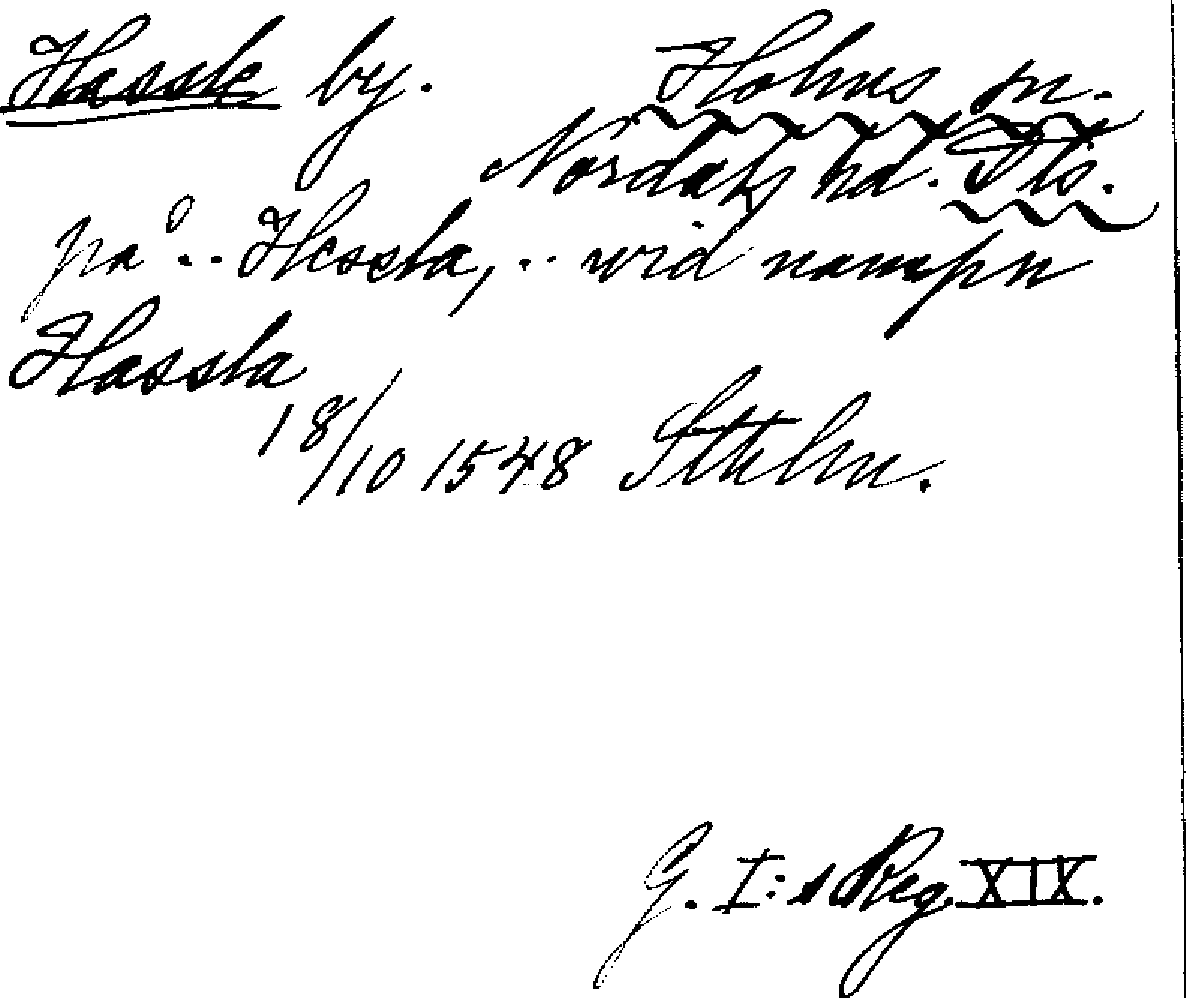 Hassle by. Holms sn.
Nordals hd. Dls.
på .. Hessla, .. wid nampn
Hassla
18/10 1548 Sthlm.
G. I:s Reg. XIX.